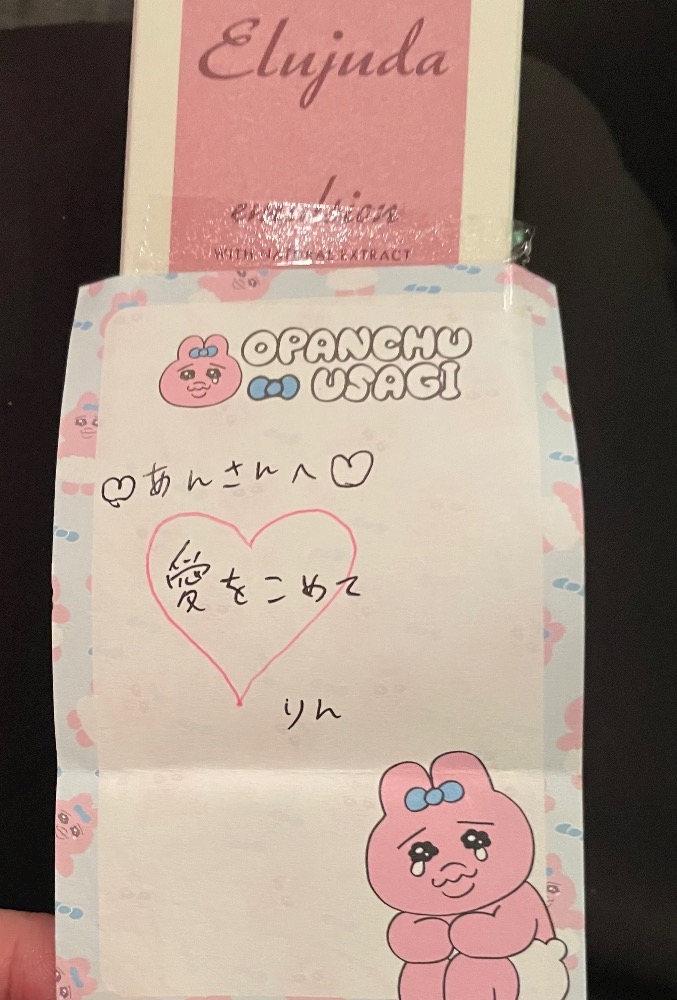 Elujuda
emulsion
WITH NATURAL EXTRACT
OPANCHU
USAGI
♡あんさんへ♡
愛をこめて
りん